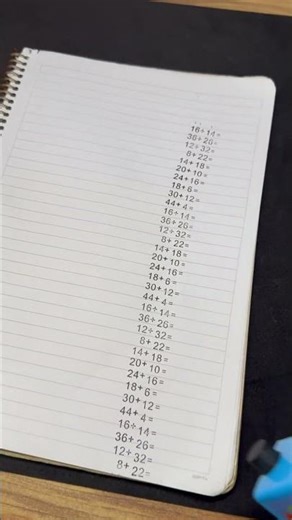 16÷14=
36÷26=
12÷32=
8+22=
14+18=
20+10=
24+16=
18+6=
30+12=
44+4=
16÷14=
36÷26=
12÷32=
8+22=
14+18=
20+10=
24+16=
18+6=
30+12=
44+4=
16÷14=
36÷26=
12÷32=
8+22=
14+18=
20+10=
24+16=
18+6=
30+12=
44+4=
16÷14=
36÷26=
12÷32=
8+22=